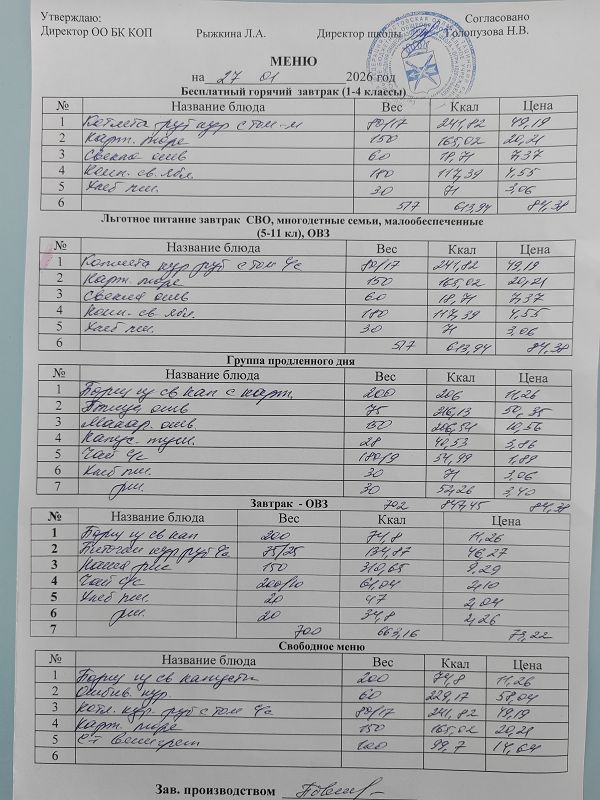 Утверждаю: Согласовано
Директор ОО БК КОП Рыжкина Л.А. Директор школы Голопузова Н.В.
МЕНЮ
на 27 01 2026 год
Бесплатный горячий завтрак (1-4 классы)
№ Название блюда Вес Ккал Цена
1 Котлета руб кур с том-м 80/17 241,82 49,19
2 Карт. пюре 150 165,02 20,21
3 Свекла отв 60 18,71 7,37
4 Комп. св. ябл. 180 117,39 4,55
5 Хлеб пш. 30 71 3,06
6 517 613,94 84,38
Льготное питание завтрак СВО, многодетные семьи, малообеспеченные
(5-11 кл), ОВЗ
№ Название блюда Вес Ккал Цена
1 Котлета кур руб с том 80/17 241,82 49,19
2 Карт. пюре 150 165,02 20,21
3 Свекла отв 60 18,71 7,37
4 Комп. св. ябл. 180 117,39 4,55
5 Хлеб пш. 30 71 3,06
6 517 613,94 84,38
Группа продленного дня
№ Название блюда Вес Ккал Цена
1 Борщ из св кап с карт. 200 206 11,26
2 Птица отв 75 50,25
3 Макар. отв. 150 10,56
4 Капус. туш. 28 40,53 3,86
5 Чай с/с 180/9 54,99 1,89
6 Хлеб пш. 30 71 3,06
7 рж. 30 52,26 3,40
Завтрак - ОВЗ 702 847,45 84,38
№ Название блюда Вес Ккал Цена
1 Борщ из св кап 200 74,8 11,26
2 Биточки кур руб 75/25 134,87 46,27
3 Каша рис 150 310,65 9,29
4 Чай с/с 200/10 61,04 2,10
5 Хлеб пш. 20 47 2,04
6 рж. 20 34,8 2,26
7 700 663,16 73,22
Свободное меню
№ Название блюда Вес Ккал Цена
1 Борщ из св капусты 200 74,8 11,26
2 Отбив. кур. 60 229,17 58,04
3 Котл. кур. руб с том 80/17 241,82 49,19
4 Карт. пюре 150 165,02 20,21
5 100 99,7 14,64
6
Зав. производством